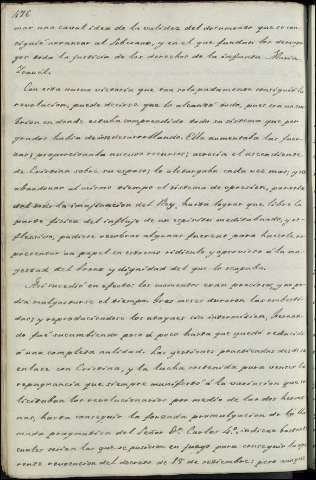 476
mar una cabal idea de la validez del documento que se con-
siguió arrancar al Soberano, y en el que fundan los revo
por toda la justicia de los derechos de la infanta Maria
Ysabel.
Con esta nueva victoria que tan solapadamente consiguió la
revolucion, puede decirse que lo alcanzó todo, pues era un em
brion en donde estaba comprendido todo su sistema que por
grados habia de irse desarrollando. Ella aumentaba las fuer-
zas, proporcionaba nuevos recursos; acrecia el ascendiente
de Cristina sobre su esposo; le alargaba cada vez mas; y sin
abandonar al mismo tiempo el sistema de opresion, parecia
del todo la imaginacion del Rey, hasta lograr que libre la
parte fisica del influjo de un espiritu meditabundo, y re-
flecsivo, pudiese recobrar algunas fuerzas para hacerle re-
presentar un papel en estremo ridiculo y oprovioso á la ma-
gestad del trono y dignidad del que lo ocupaba.
Asi sucedió en efecto: los momentos eran preciosos, y no po-
dia malgastarse el tiempo. Tres meses duraron las embesti-
das, y reproduciendose los ataques sin intermision, Fernan-
do fué sucumbiendo poco á poco hasta que quedó reducido
á una completa nulidad. Las gestiones practicadas desde su
enlace con Cristina, y la lucha sostenida para vencer la
repugnancia que siempre manifestó á la variacion que so-
licitaban los revolucionarios por medio de las dos herma-
nas, hasta conseguir la forzada promulgacion de la lla-
mada pragmatica del Señor Dn. Carlos 4.º, indican bastante
cuales serian las que se pusieron en juego para conseguir la apa
rente revocacion del decreto de 18 de setiembre; pero aunque